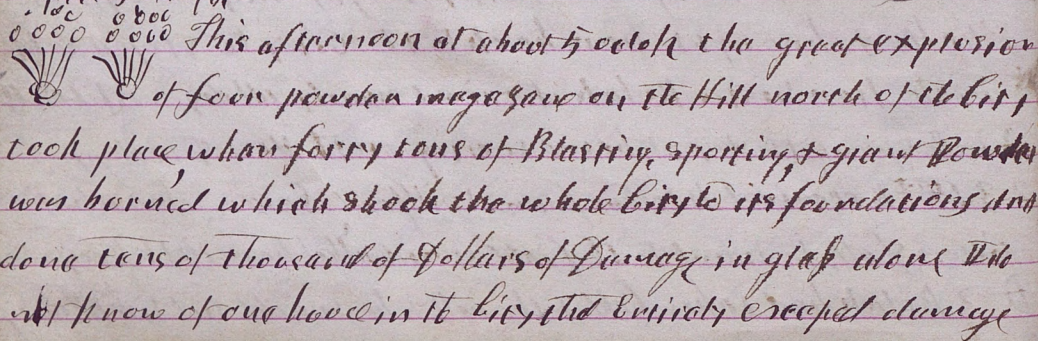 This afternoon at about 5 oclock the great explosion
of four powder magazane on the Hill north of the City
took place, when forty tons of Blasting, sporting, & giant Powder
was borned which shook the whole City to its foundations and
done tens of thousand of Dollars of Damage in glass alone I do
not know of one house in the City that Entirely escaped damage